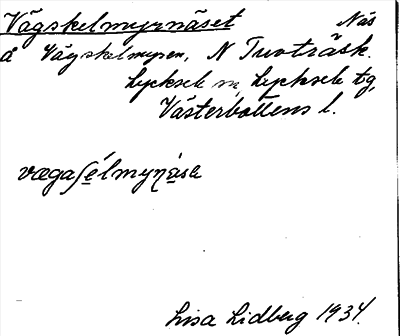 Vägskelmyrnäset Näs
å Vägskelmyren, N Tuvträsk.
Lycksele sn, Lycksele tg,
Västerbottens l.
vægaʃélmyɳäsə
Lisa Lidberg 1934.